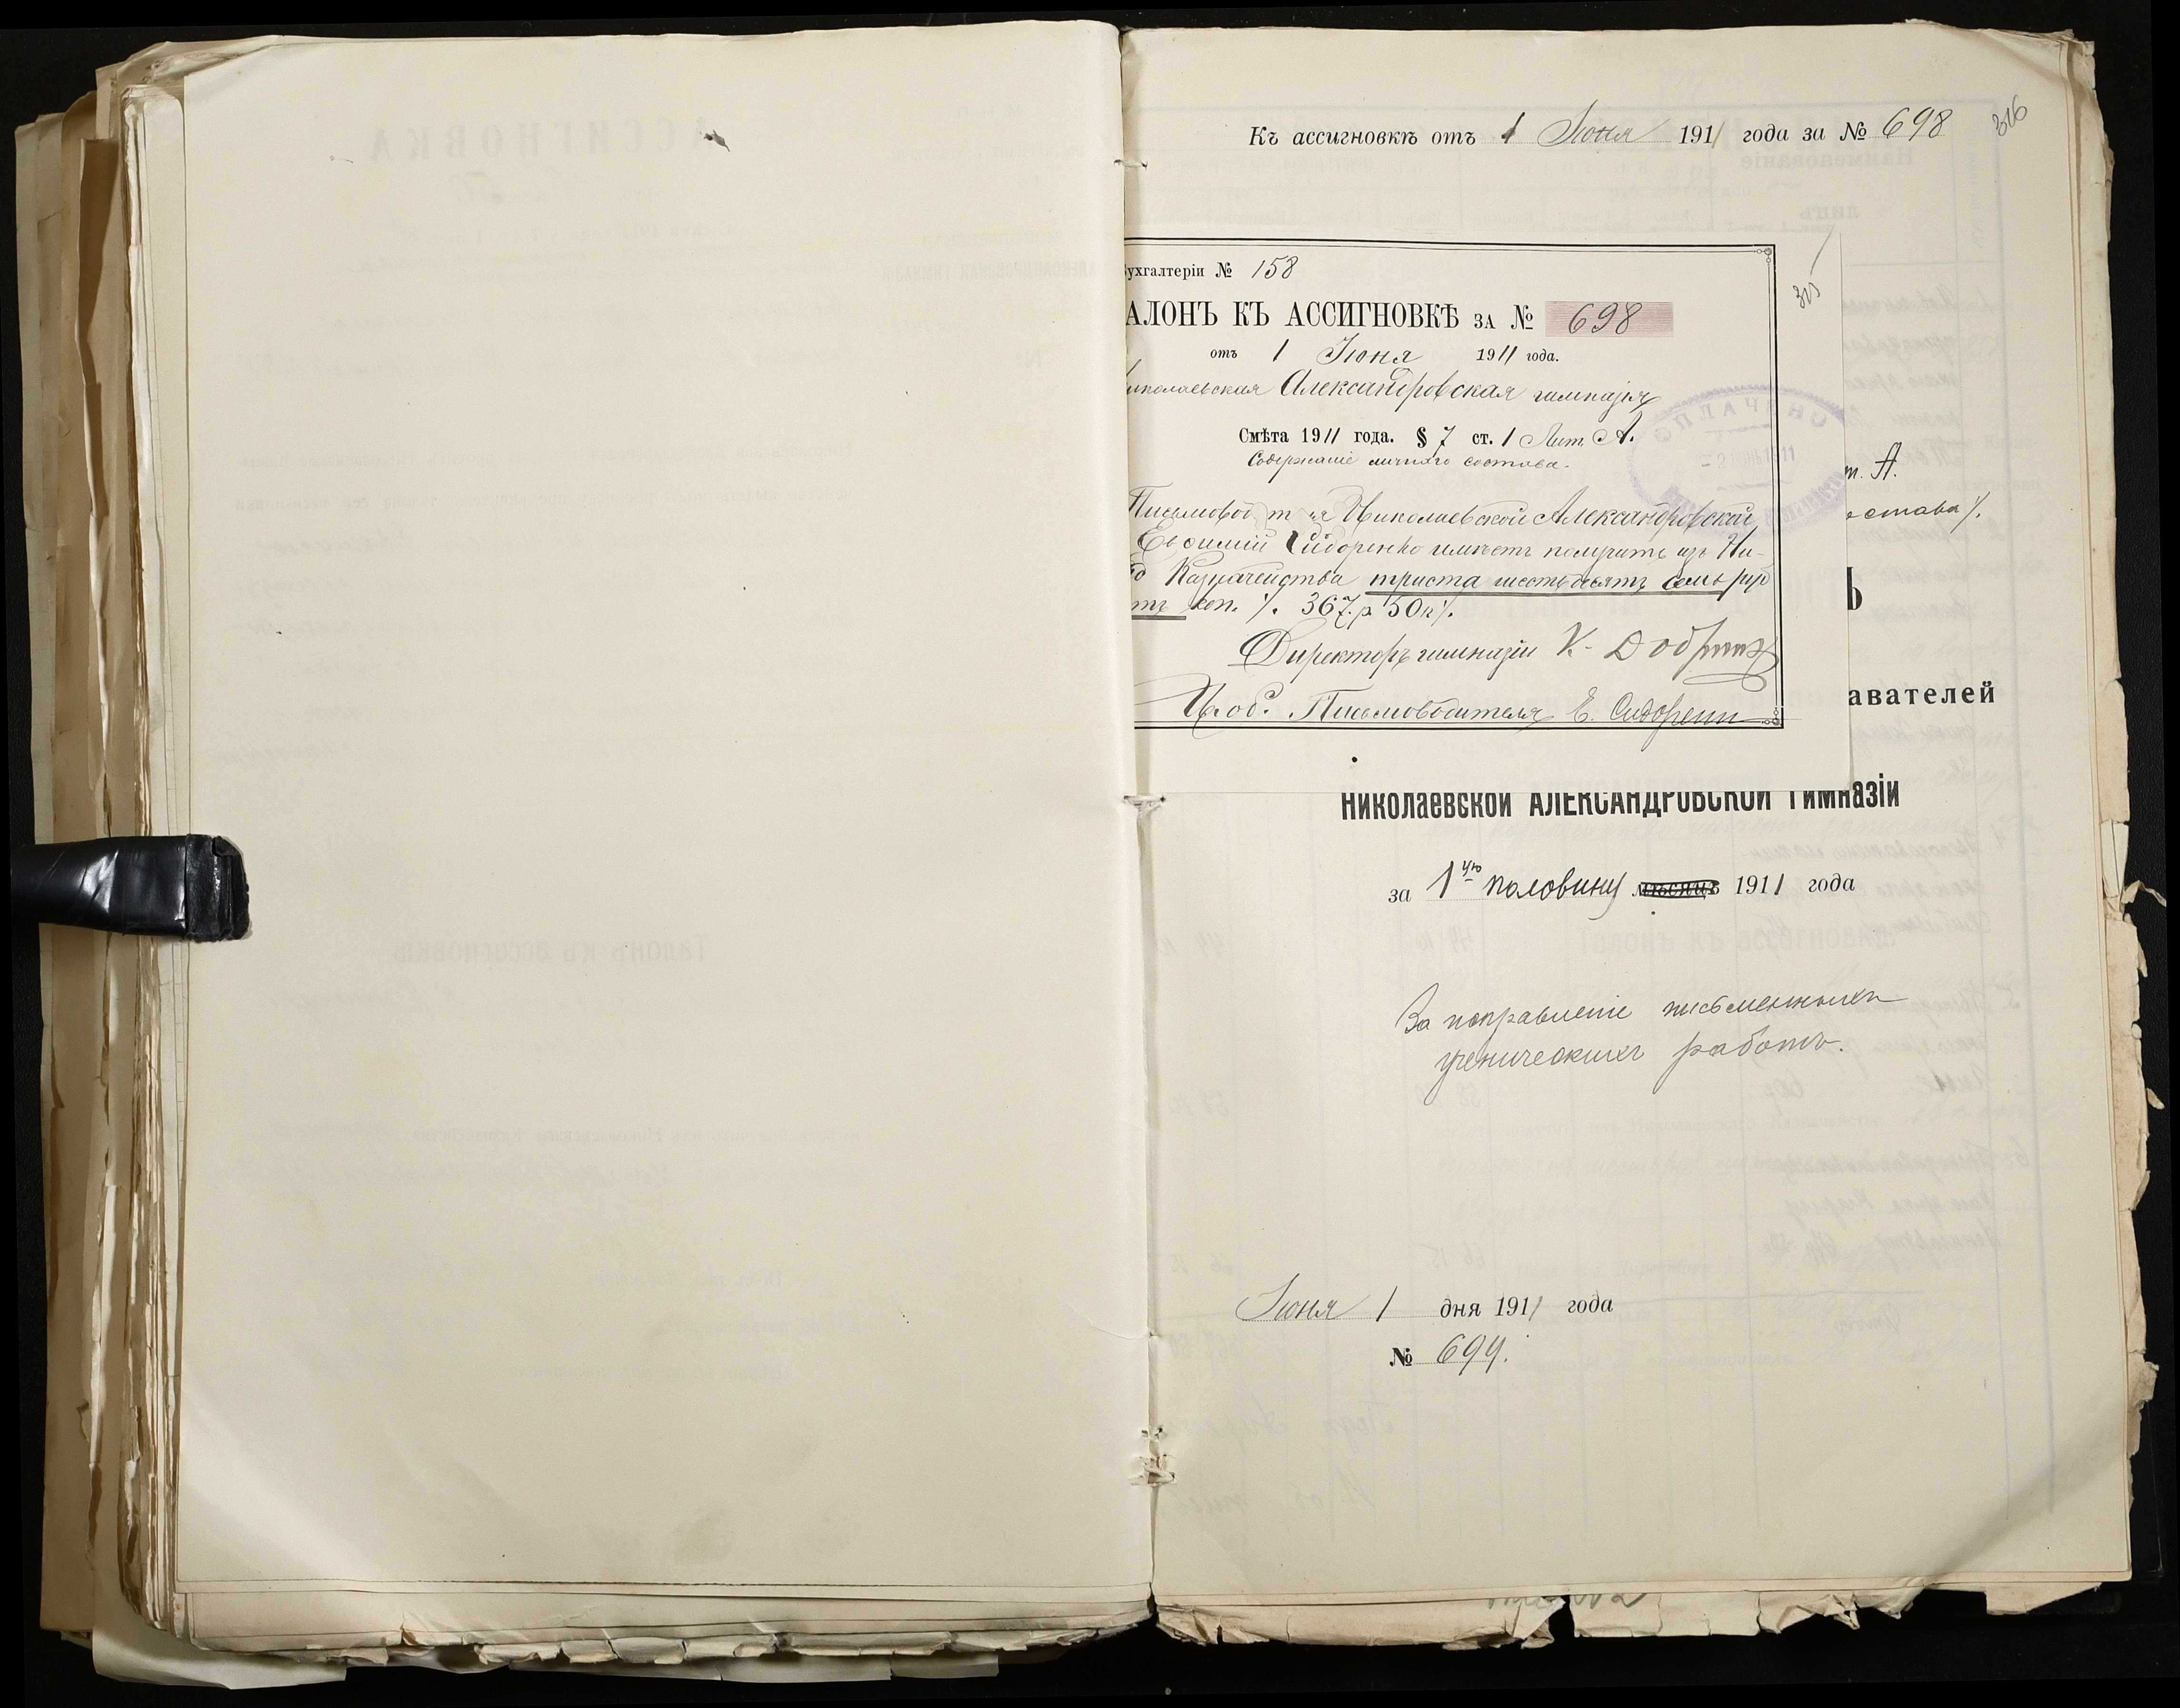 Къ ассигновкѣ отъ 1 Іюня 1911 года за № 698
316
ухгалтеріи № 158
315
АЛОНЪ КЪ АССИГНОВКѢ ЗА № 698
отъ 1 Іюня 1911 года.
иколаевская Александровская гимназія
Смѣта 1911 года. § 7 ст. 1 Лит. А.
Содержаніе личнаго состава.
ОПЛАЧЕНО
- 2 ІЮН 1911
т. А.
остава/.
Николаевской Александровской
Евфимій Сидоренко имѣетъ получить изъ Ни-
Казначейства триста шестьдесятъ семь руб
коп. /. 367 р 50 к/.
Директоръ гимназіи К.
И. об. Письмоводителя Е. Сидоренко
Ъ
авателей
Николаевской АЛЕКСАНДРОВСКОЙ Гимназіи
за 1ую половину мѣсяцъ 1911 года
За поправленіе письменныхъ
ученическихъ работъ.
Іюня 1 дня 1911 года
№ 699.